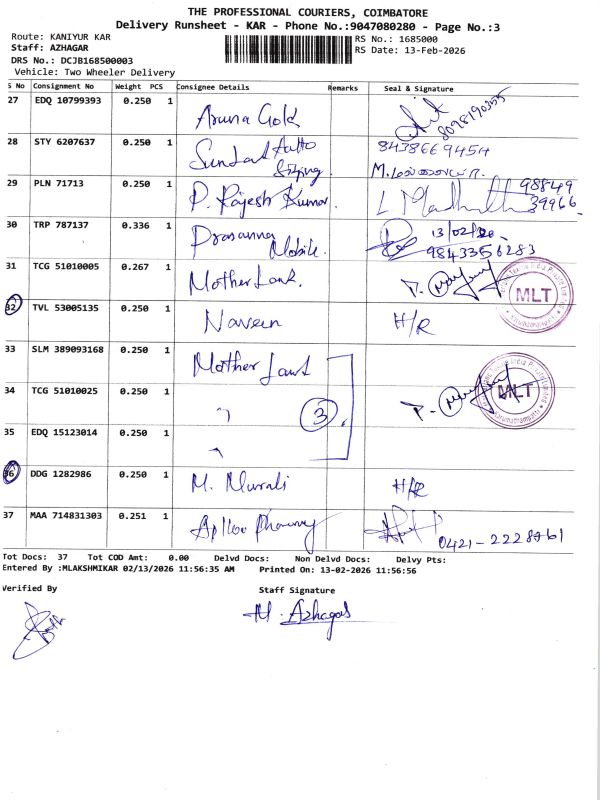 THE PROFESSIONAL COURIERS, COIMBATORE
Delivery Runsheet - KAR - Phone No.:9047080280 - Page No.:3
Route: KANIYUR KAR
RS No.: 1685000
Staff: AZHAGAR
RS Date: 13-Feb-2026
DRS No.: DCJB168500003
Vehicle: Two Wheeler Delivery
S No Consignment No Weight PCS Consignee Details Remarks Seal & Signature
27 EDQ 10799393 0.250 1 Aruna Gold 8098190355
28 STY 6207637 0.250 1 Sundar Auto 8438669454
29 PLN 71713 0.250 1 P. Rajesh Kumar 98849 39966
30 TRP 787137 0.336 1 Prasanna Mobile 13/02/26 9843356283
31 TCG 51010005 0.267 1 Mother Land MLT
32 TVL 53005135 0.250 1 Naveen H/R
33 SLM 389093168 0.250 1 Mother Land
34 TCG 51010025 0.250 1 " 3 MLT
35 EDQ 15123014 0.250 1 "
36 DDG 1282986 0.250 1 M. Murali H/R
37 MAA 714831303 0.251 1 Aplloo Pharmacy 0421-2228961
Tot Docs: 37 Tot COD Amt: 0.00 Delvd Docs: Non Delvd Docs: Delvy Pts:
Entered By :MLAKSHMIKAR 02/13/2026 11:56:35 AM Printed On: 13-02-2026 11:56:56
Verified By
Staff Signature
M. Azhagar